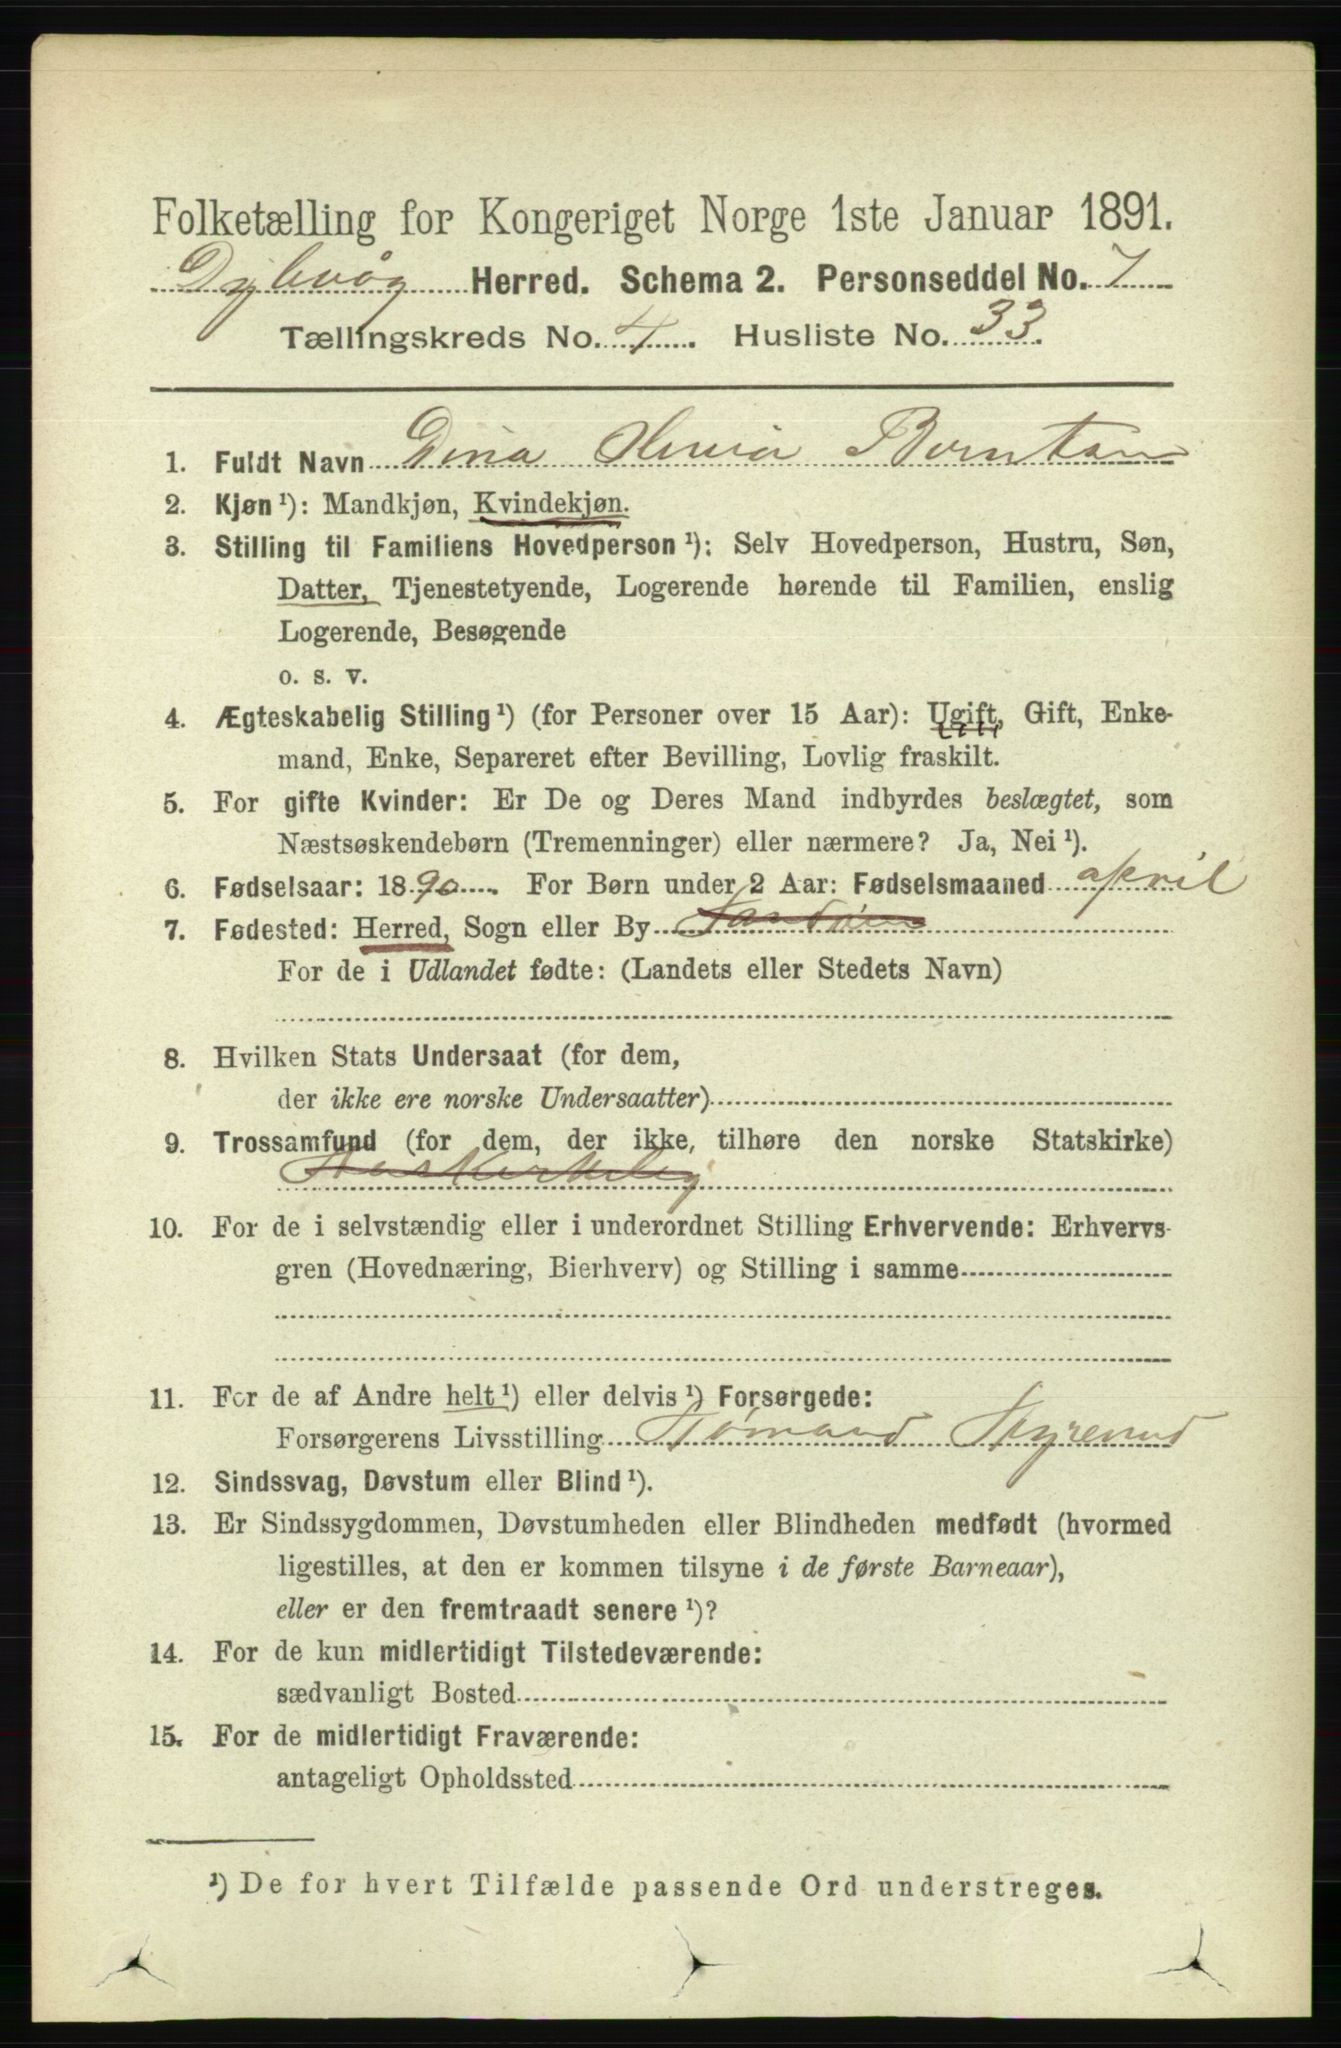 Folketælling for Kongeriget Norge 1ste Januar 1891.
Dybvåg Herred. Schema 2. Personseddel No. 7
Tællingskreds No. 4. Husliste No. 33.
1. Fuldt Navn Dina Berntsen
2. Kjøn ¹): Mandkjøn, Kvindekjøn.
3. Stilling til Familiens Hovedperson ¹): Selv Hovedperson, Hustru, Søn,
Datter, Tjenestetyende, Logerende hørende til Familien, enslig
Logerende, Besøgende
o. s. v.
4. Ægteskabelig Stilling ¹) (for Personer over 15 Aar): Ugift, Gift, Enke-
mand, Enke, Separeret efter Bevilling, Lovlig fraskilt.
5. For gifte Kvinder: Er De og Deres Mand indbyrdes beslægtet, som
Næstsøskendebørn (Tremenninger) eller nærmere? Ja, Nei ¹).
6. Fødselsaar: 1890 . For Børn under 2 Aar: Fødselsmaaned april
7. Fødested: Herred, Sogn eller By Sandøen
For de i Udlandet fødte: (Landets eller Stedets Navn)
8. Hvilken Stats Undersaat (for dem,
der ikke ere norske Undersaatter)
9. Trossamfund (for dem, der ikke tilhøre den norske Statskirke)
10. For de i selvstændig eller i underordnet Stilling Erhvervende: Erhvervs-
gren (Hovednæring, Bierhverv) og Stilling i samme
11. For de af Andre helt ¹) eller delvis ¹) Forsørgede:
Forsørgerens Livsstilling Sømand Styrmand
12. Sindssvag, Døvstum eller Blind ¹).
13. Er Sindssygdommen, Døvstumheden eller Blindheden medfødt (hvormed
ligestilles, at den er kommen tilsyne i de første Barneaar),
eller er den fremtraadt senere ¹)?
14. For de kun midlertidigt Tilstedeværende:
sædvanligt Bosted
15. For de midlertidigt Fraværende:
antageligt Opholdssted
¹) De for hvert Tilfælde passende Ord understreges.